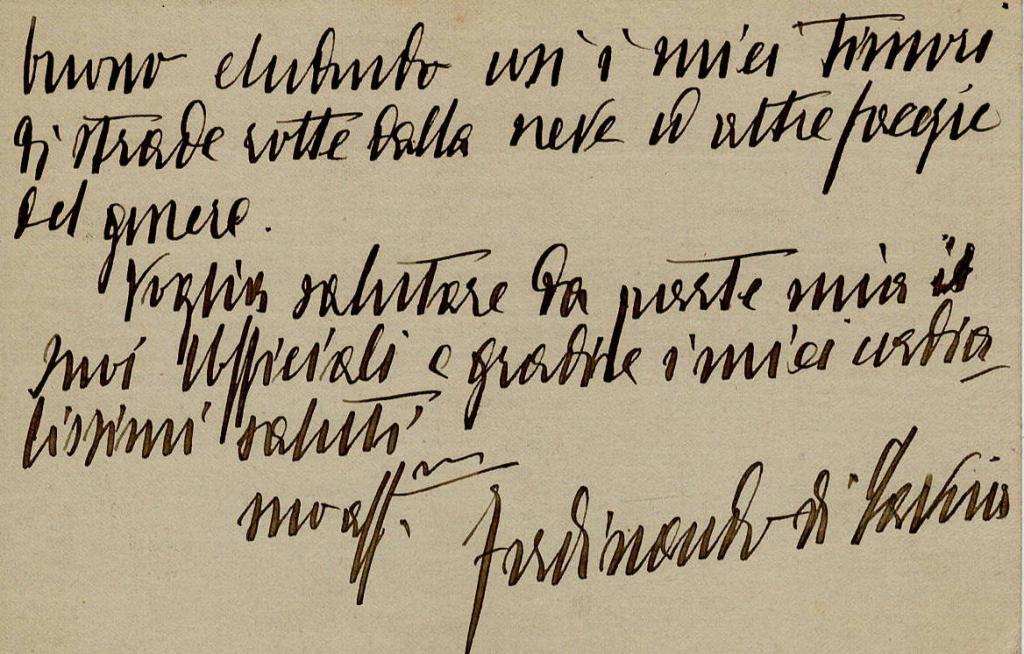 buono eludendo così i miei timori
di strade rotte dalla neve ed altre
del genere.
Voglia salutare da parte mia i
suoi Ufficiali e gradire i miei cordia
lissimi saluti
suo aff.mo
Ferdinando di Savoia